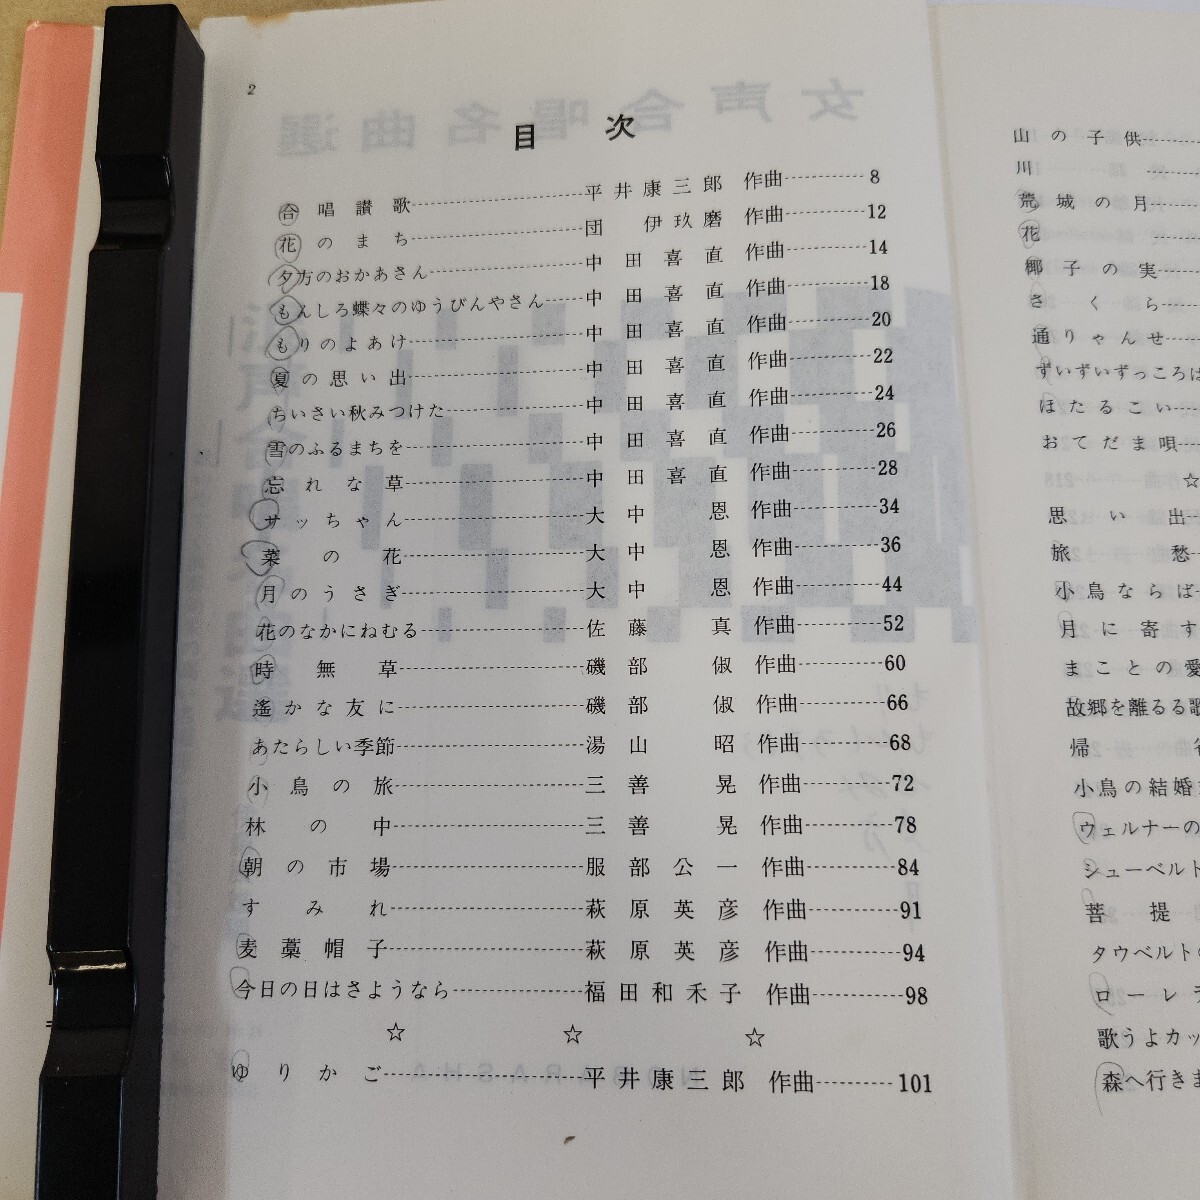 2
目次
合唱讃歌 平井康三郎 作曲 8
花のまち 団伊玖磨 作曲 12
夕方のおかあさん 中田喜直 作曲 14
もんしろ蝶々のゆうびんやさん 中田喜直 作曲 18
もりのよあけ 中田喜直 作曲 20
夏の思い出 中田喜直 作曲 22
ちいさい秋みつけた 中田喜直 作曲 24
雪のふるまちを 中田喜直 作曲 26
忘れな草 中田喜直 作曲 28
サッちゃん 大中恩 作曲 34
菜の花 大中恩 作曲 36
月のうさぎ 大中恩 作曲 44
花のなかにねむる 佐藤真 作曲 52
時無草 磯部俶 作曲 60
遙かな友に 磯部俶 作曲 66
あたらしい季節 湯山昭 作曲 68
小鳥の旅 三善晃 作曲 72
林の中 三善晃 作曲 78
朝の市場 服部公一 作曲 84
すみれ 萩原英彦 作曲 91
麦藁帽子 萩原英彦 作曲 94
今日の日はさようなら 福田和禾子 作曲 98
☆ ☆ ☆
ゆりかご 平井康三郎 作曲 101
山の子供
川
荒城の月
花
椰子の実
さくら
通りゃんせ
ずいずいずっころば
ほたるこい
おてだま唄
☆
思い出
旅愁
小鳥ならば
月に寄す
まことの愛
故郷を離るる歌
帰
小鳥の結婚
ウェルナーの
シューベルト
菩提
タウベルトの
ローレラ
歌うよカッ
森へ行きま
女声合唱名曲選